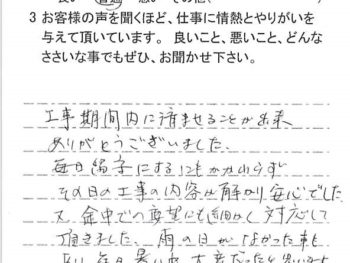 3 お客様の声を聞くほど、仕事に情熱とやりがいを
与えて頂いています。 良いこと、悪いこと、どんな
ささいな事でもぜひ、お聞かせ下さい。
工事期間内に済ませることが出来
ありがとうございました。
毎日留守にするにもかかわらず
その日の工事の内容が解かり安心でした
又、途中での要望にも細かく対応して
頂きました、雨の日がなかった事も
毎日暑い中 大変だったと思います